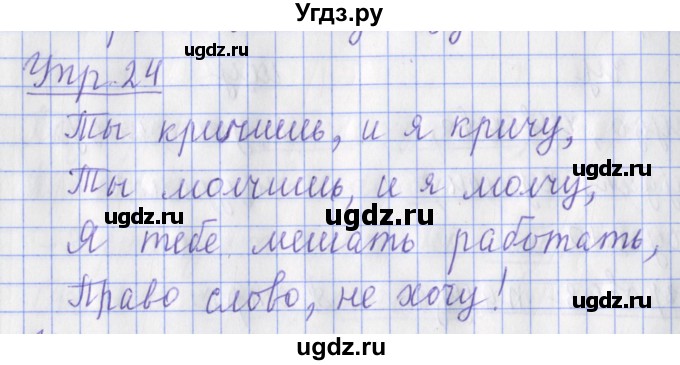 Угдз.ру
ugdz.ru
Упр. 24
ugdz.ru
Ты кричишь, и я кричу,
ugdz.ru
Ты молчишь, и я молчу,
ugdz.ru
ugdz.ru
Я тебе мешать работать,
Право слово, не хочу!
ugdz.ru
ugdz.ru
ugdz.ru